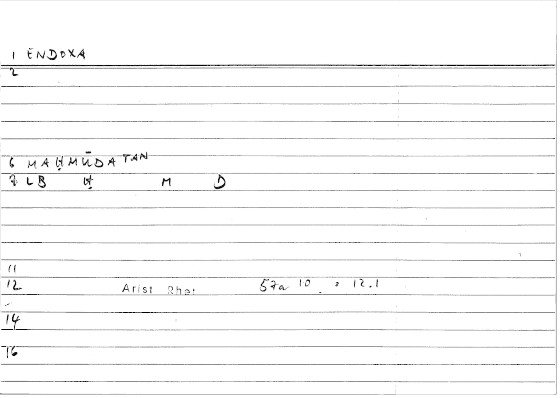 1 ENDOXA
2
6 MAḤMŪDATAN
7 LB Ḥ M D
11
12 Arist Rhet 57a 10 = 12.1
14
16